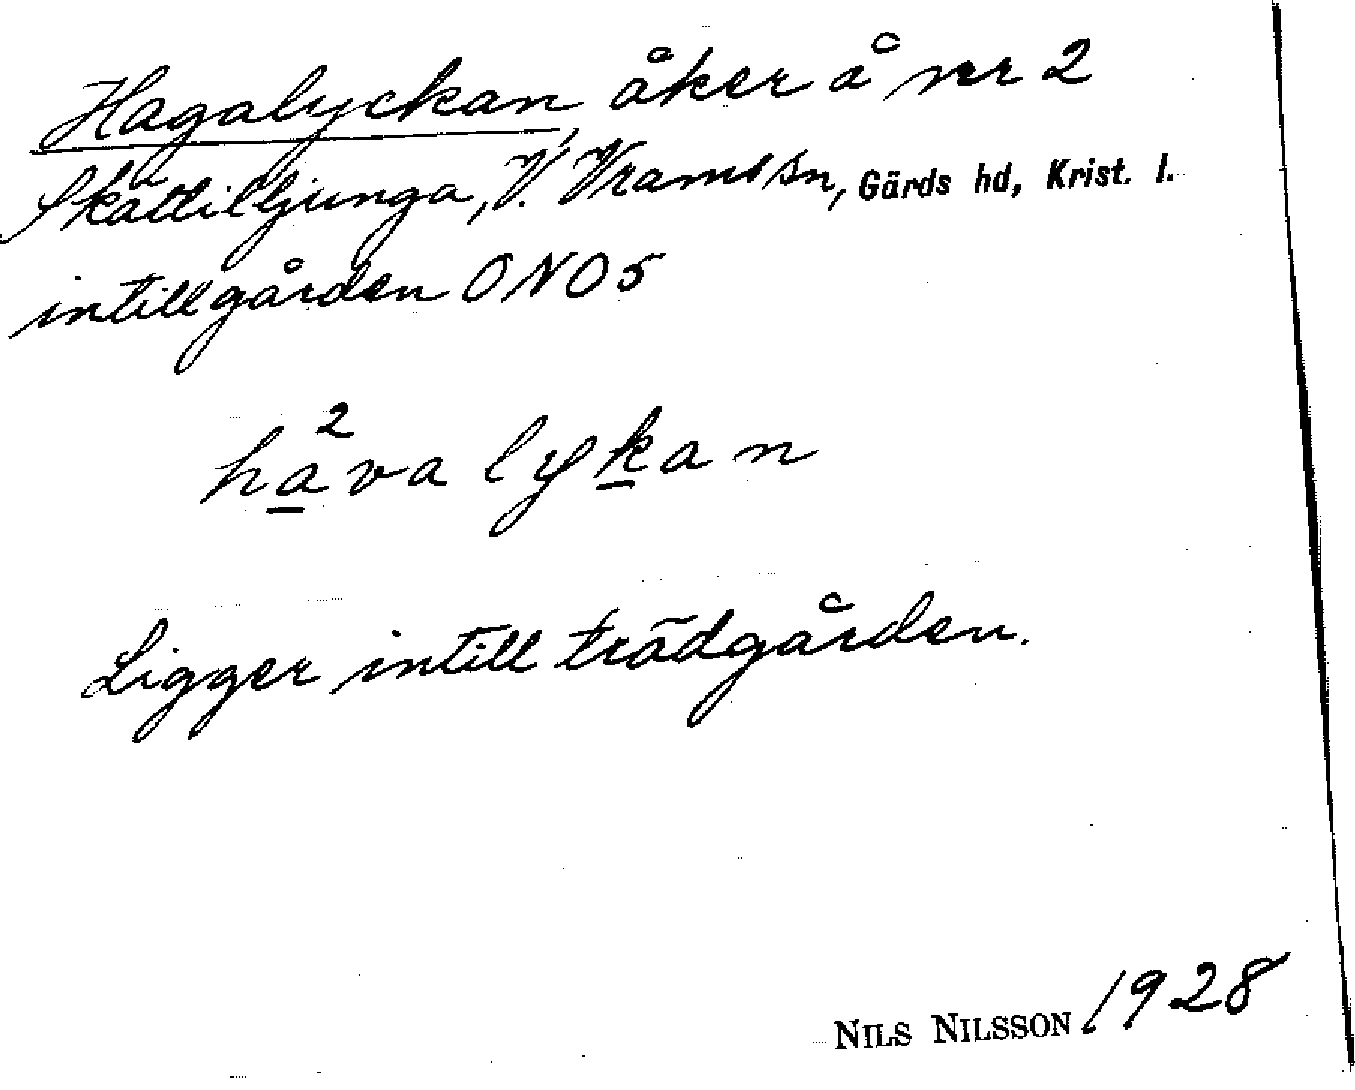 Hagalyckan, åker å nr 2
Skättilljunga, V. Vrams sn, Gärds hd, Krist. l.
intill gården ONO 5
2
hava lykan
Ligger intill trädgården.
NILS NILSSON 1928